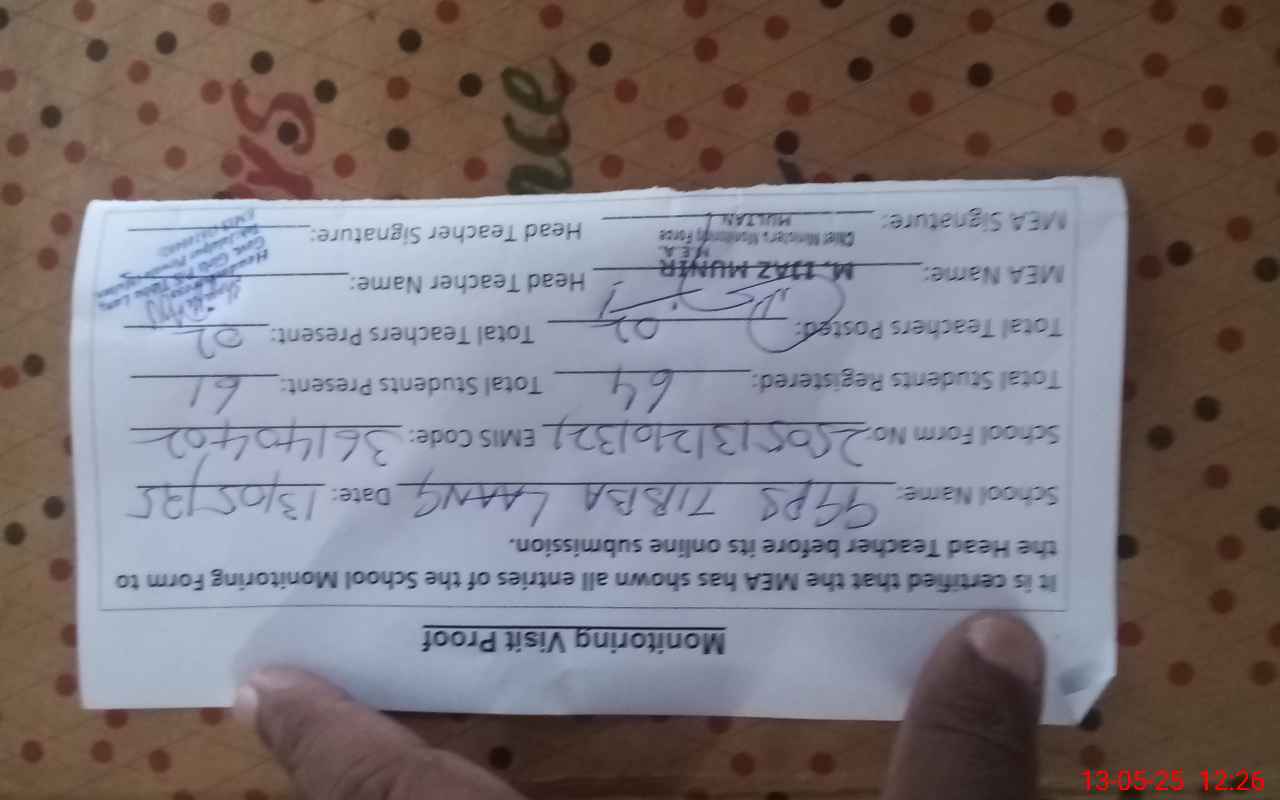 Monitoring Visit Proof
It is certified that the MEA has shown all entries of the School Monitoring Form to
the Head Teacher before its online submission.
School Name: GGPS TIBBA LAANG Date: 13/05/25
School Form No: EMIS Code: 36140402
Total Students Registered: 64 Total Students Present: 61
Total Teachers Posted: 02 Total Teachers Present: 02
MEA Name: M. IJAZ MUNIR Head Teacher Name:
M.E.A
Chief Minister's Monitoring Force
MULTAN
MEA Signature: Head Teacher Signature:
13-05-25 12:26